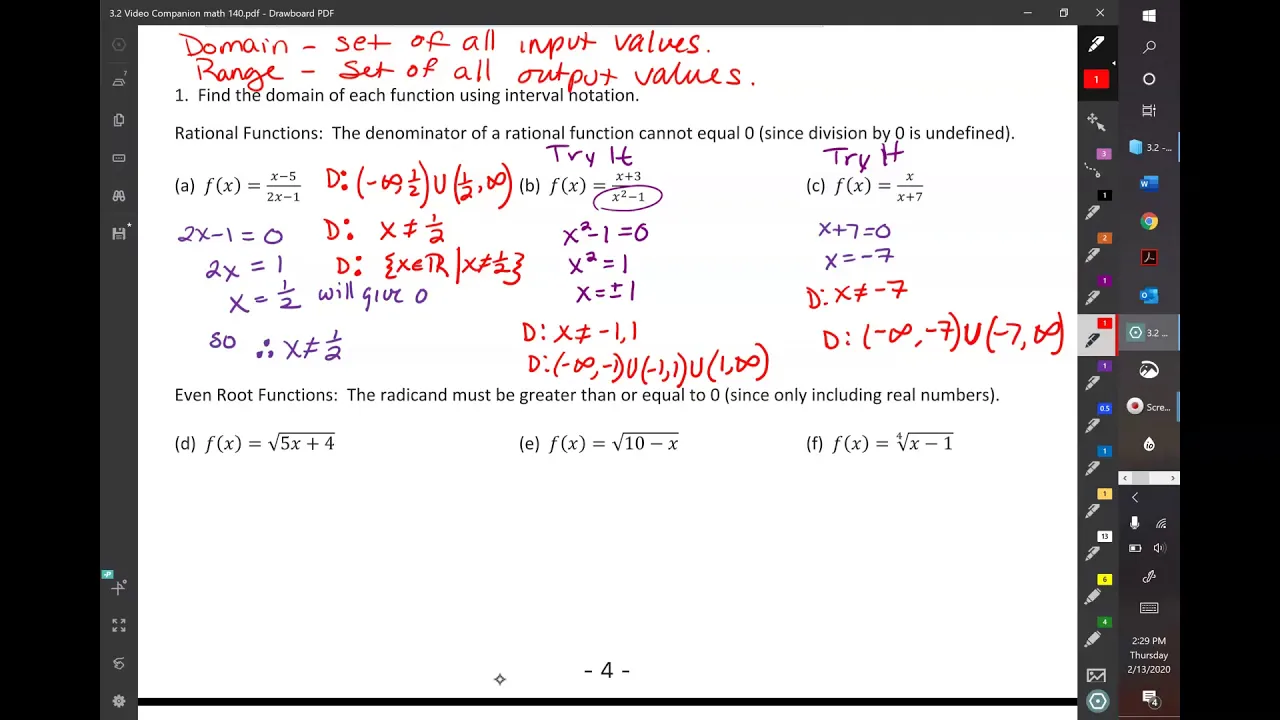 3.2 Video Companion math 140.pdf - Drawboard PDF
Domain - set of all input values.
Range - set of all output values.
1. Find the domain of each function using interval notation.
Rational Functions: The denominator of a rational function cannot equal 0 (since division by 0 is undefined).
Try It
Try It
(a) f(x) = x−5/2x−1 D: (-∞, 1/2) ∪ (1/2, ∞) (b) f(x) = x+3/x²−1 (c) f(x) = x/x+7
2x-1=0 D: x ≠ 1/2 x²-1=0 x+7=0
2x = 1 D: {x∈ℝ | x≠1/2} x² = 1 x = -7
x = 1/2 will give 0 x = ±1 D: x ≠ -7
so ∴ x ≠ 1/2 D: x ≠ -1, 1 D: (-∞, -7) ∪ (-7, ∞)
D: (-∞, -1) ∪ (-1, 1) ∪ (1, ∞)
Even Root Functions: The radicand must be greater than or equal to 0 (since only including real numbers).
(d) f(x) = √5x + 4 (e) f(x) = √10 − x (f) f(x) = ∜x − 1
- 4 -
1
3
1
2
1
1
1
0.5
1
1
13
6
4
3.2 ...
3.2 ...
Scre...
2:29 PM
Thursday
2/13/2020
4